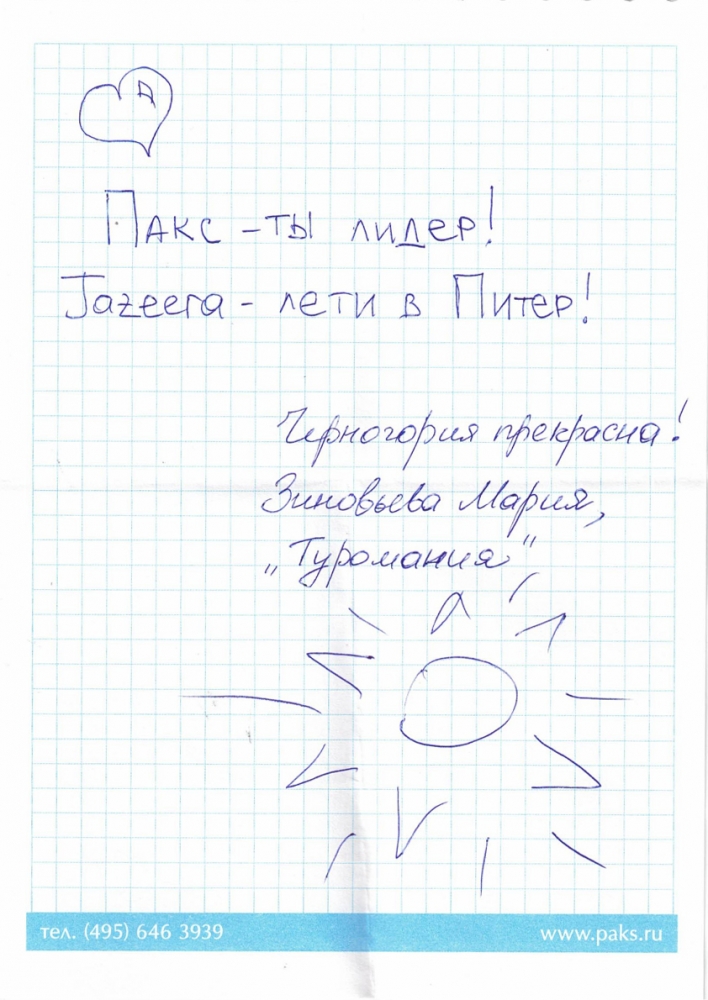 Д
Пакс – ты лидер!
Jazeera – лети в Питер!
Черногория прекрасна!
Зиновьева Мария,
„Туромания"
тел. (495) 646 3939
www.paks.ru